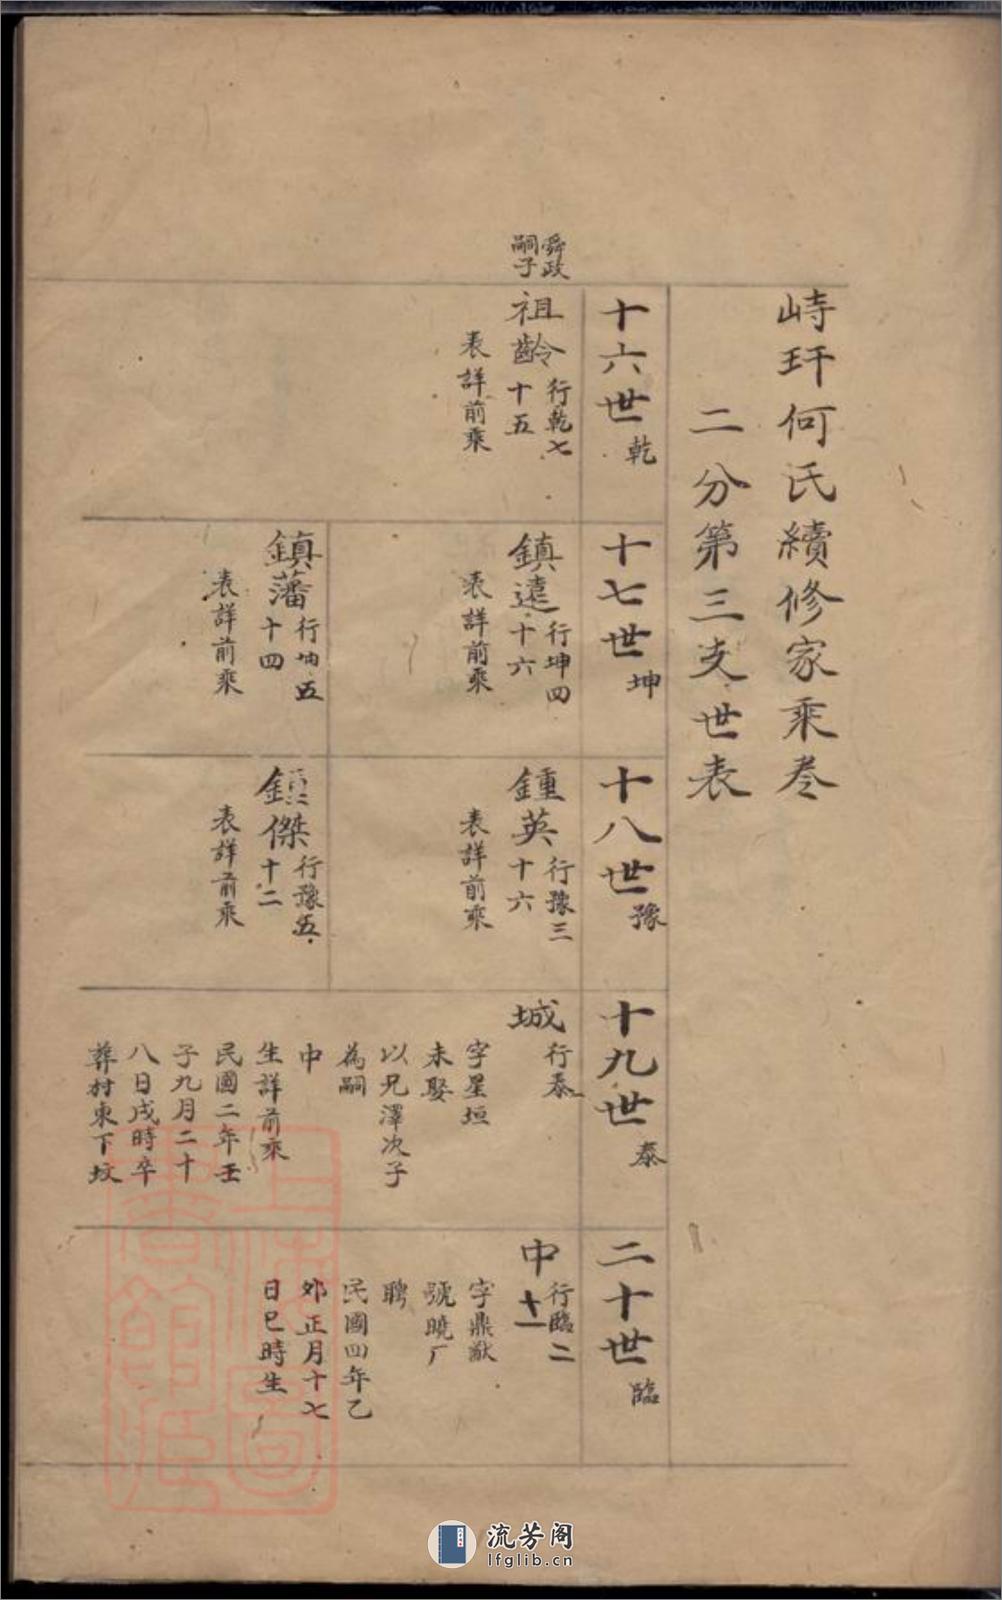 峙玕何氏續修家乘卷
二分第三支世表
十六世乾
舜政
嗣子
祖齡
行乾七
十五
表詳前乘
十七世坤
鎮遠
行坤四
十六
表詳前乘
鎮藩
行坤五
十四
表詳前乘
十八世豫
鍾英
行豫三
十六
表詳前乘
鍾傑
行豫五
十二
表詳前乘
十九世泰
城
行泰
字星垣
未娶
以兄澤次子
為嗣
中
生詳前乘
民國二年壬
子九月二十
八日戌時卒
葬村東下坟
二十世臨
中
行臨二
十一
字鼎猷
號曉厂
聘
民國四年乙
夘正月十七
日巳時生
上海圖
書館藏
流芳阁
lfglib.cn